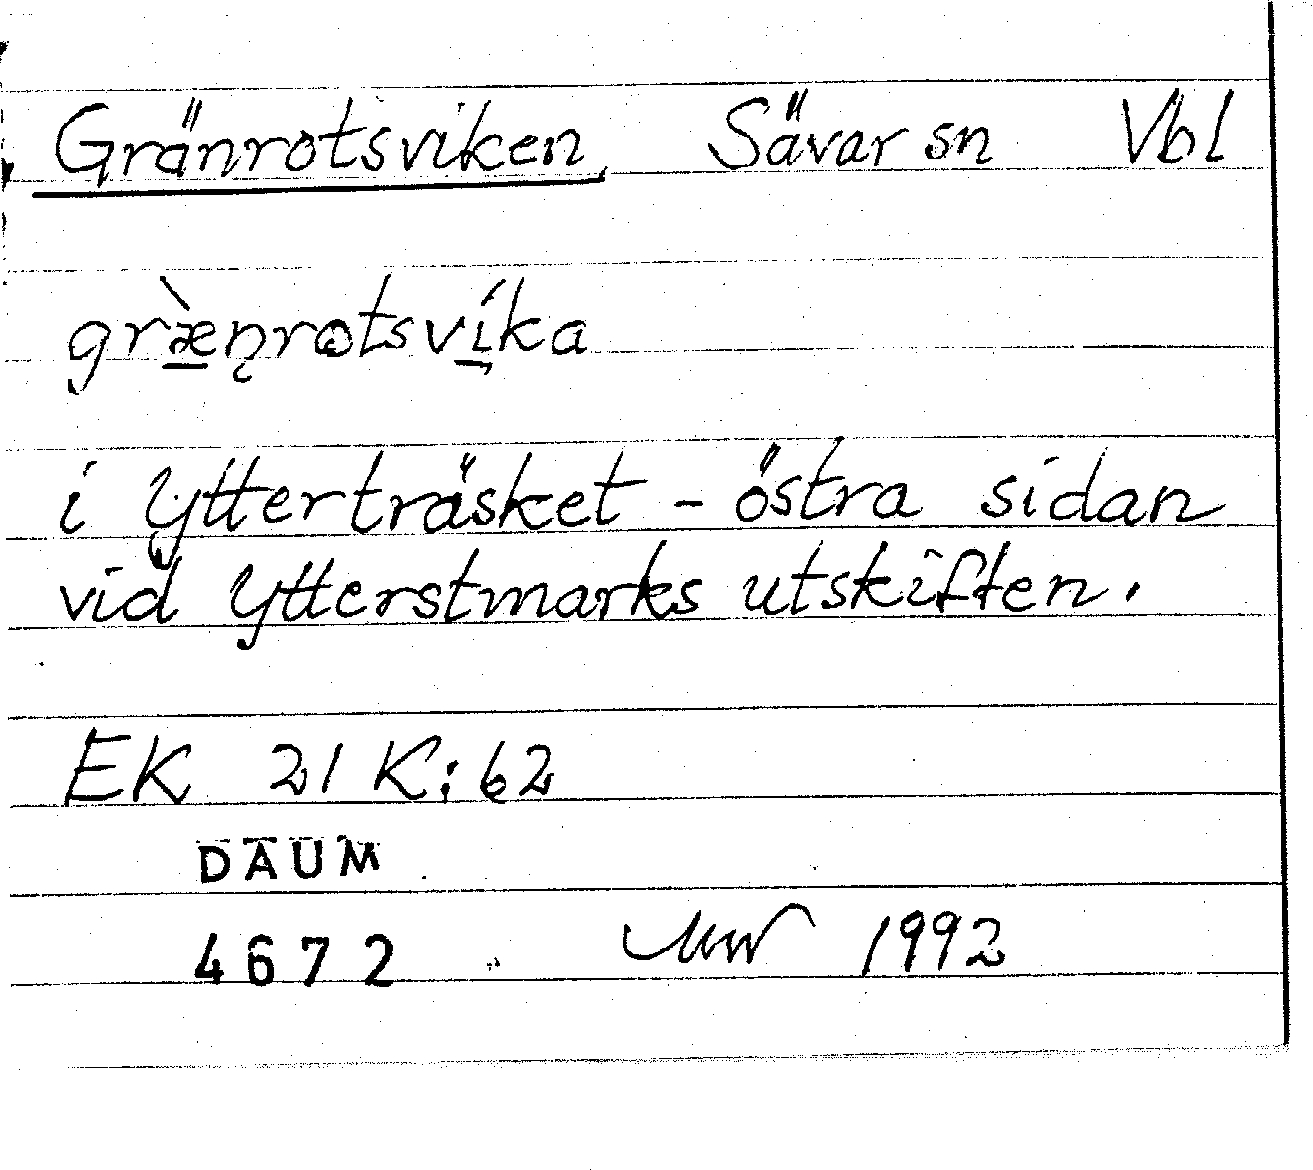 Gränrotsviken Sävar sn Vbl
græ̲̀n̨rotsví̲ka
i Ytterträsket - östra sidan
vid Ytterstmarks utskiften.
EK 21 K:62
DAUM
4672 1992